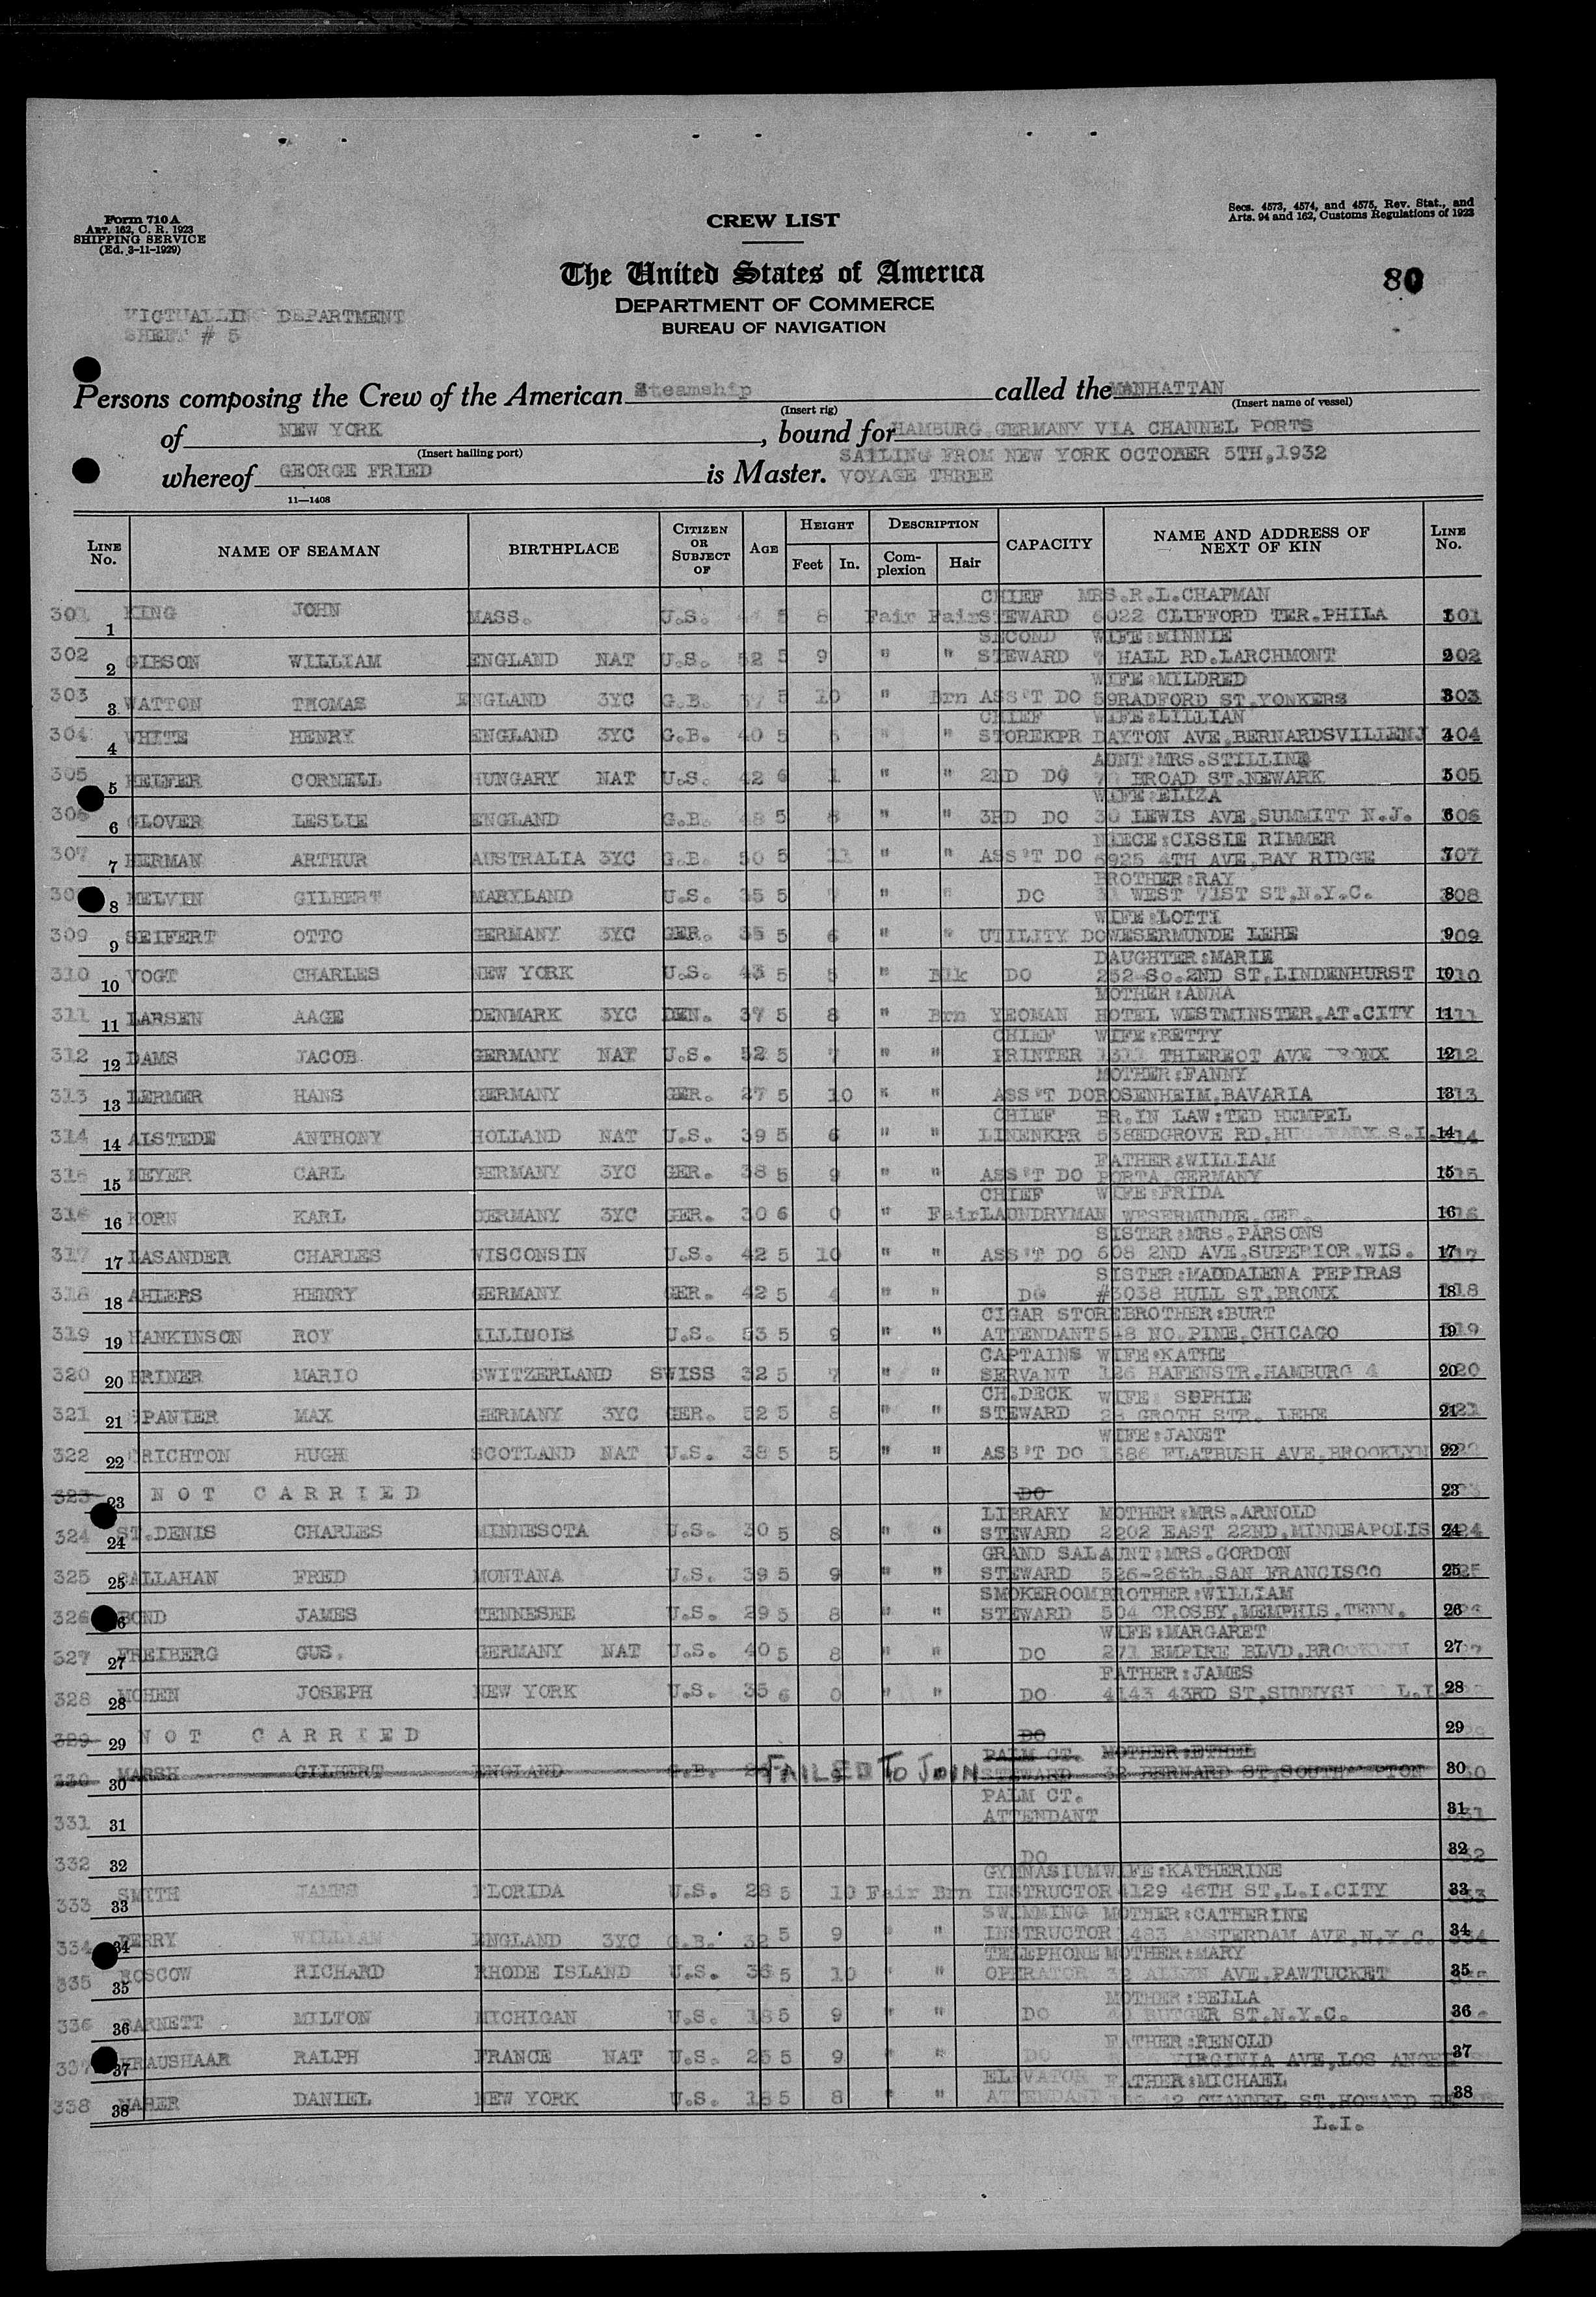 Form 710 A
ART. 162, C. R. 1923
SHIPPING SERVICE
(Ed. 3-11-1929)
CREW LIST
Secs. 4573, 4574, and 4575, Rev. Stat., and
Arts. 94 and 162, Customs Regulations of 1923
The United States of America
DEPARTMENT OF COMMERCE
BUREAU OF NAVIGATION
80
DEPARTMENT
SHEET # 5
Persons composing the Crew of the American Steamship called the MANHATTAN
(Insert rig) (Insert name of vessel)
of NEW YORK, bound for HAMBURG, GERMANY VIA CHANNEL PORTS
(Insert hailing port)
SAILING FROM NEW YORK OCTOBER 5TH, 1932
whereof GEORGE FRIED is Master. VOYAGE THREE
11—1408
LINE No. NAME OF SEAMAN BIRTHPLACE CITIZEN OR SUBJECT OF AGE HEIGHT Feet In. DESCRIPTION Complexion Hair CAPACITY NAME AND ADDRESS OF NEXT OF KIN LINE No.
CHIEF MRS.R.L.CHAPMAN
301 1 KING JOHN MASS. U.S. 5 8 Fair Fair STEWARD 6022 CLIFFORD TER.PHILA 301
SECOND WIFE:MINNIE
302 2 GIBSON WILLIAM ENGLAND NAT U.S. 52 5 9 " " STEWARD HALL RD.LARCHMONT 302
WIFE:MILDRED
303 3 WATTON THOMAS ENGLAND 3YC G.B. 37 5 10 " Brn ASS'T DO 59RADFORD ST.YONKERS 303
CHIEF WIFE:LILLIAN
304 4 WHITE HENRY ENGLAND 3YC G.B. 40 5 " " STOREKPR DAYTON AVE,BERNARDSVILLENJ 304
AUNT:MRS.STILLING
305 5 HELFER CORNELL HUNGARY NAT U.S. 42 6 1 " " 2ND DO BROAD ST.NEWARK 305
WIFE:ELIZA
306 6 GLOVER LESLIE ENGLAND G.B. 48 5 8 " " 3RD DO 30 LEWIS AVE,SUMMITT N.J. 306
NIECE:CISSIE RIMMER
307 7 HERMAN ARTHUR AUSTRALIA 3YC G.B. 50 5 11 " " ASS'T DO 6925 4TH AVE,BAY RIDGE 307
BROTHER:RAY
8 MELVIN GILBERT MARYLAND U.S. 35 5 7 " " DO WEST 71ST ST.N.Y.C. 308
WIFE:LOTTI
309 9 SEIFERT OTTO GERMANY 3YC GER. 35 5 6 " " UTILITY DO WESERMUNDE LEHE 309
DAUGHTER:MARIE
310 10 VOGT CHARLES NEW YORK U.S. 43 5 5 " Blk DO 252 So.2ND ST,LINDENHURST 10
MOTHER:ANNA
311 11 LARSEN AAGE DENMARK 3YC DEN. 37 5 8 " Brn YEOMAN HOTEL WESTMINSTER,AT.CITY 11
CHIEF WIFE:BETTY
312 12 DAMS JACOB GERMANY NAT U.S. 52 5 7 " " PRINTER THIEREOT AVE BRONX 12
MOTHER:FANNY
313 13 LERMER HANS GERMANY GER. 27 5 10 " " ASS'T DO ROSENHEIM,BAVARIA 13
CHIEF BR.IN LAW:TED HEMPEL
314 14 ALSTEDE ANTHONY HOLLAND NAT U.S. 39 5 6 " " LINENKPR 538EDGROVE RD, S.I. 14
FATHER:WILLIAM
315 15 MEYER CARL GERMANY 3YC GER. 38 5 9 " " ASS'T DO PORTA GERMANY 15
CHIEF WIFE:FRIDA
316 16 KORN KARL GERMANY 3YC GER. 30 6 0 " Fair LAUNDRYMAN WESERMUNDE,GER. 16
SISTER:MRS.PARSONS
317 17 LASANDER CHARLES WISCONSIN U.S. 42 5 10 " " ASS'T DO 608 2ND AVE,SUPERIOR,WIS. 17
SISTER:MADDALENA PEPIRAS
318 18 AHLERS HENRY GERMANY GER. 42 5 4 " " DO #3038 HULL ST,BRONX 18
CIGAR STORE BROTHER:BURT
319 19 HANKINSON ROY ILLINOIS U.S. 53 5 9 " " ATTENDANT 548 NO.PINE,CHICAGO 19
CAPTAINS WIFE:KATHE
320 20 BRINER MARIO SWITZERLAND SWISS 32 5 7 " " SERVANT 126 HAFENSTR.HAMBURG 4 20
CH.DECK WIFE: SOPHIE
321 21 SPANIER MAX GERMANY 3YC GER. 52 5 8 " " STEWARD GROTH STR. LEHE 21
WIFE:JANET
322 22 CRICHTON HUGH SCOTLAND NAT U.S. 38 5 5 " " ASS'T DO 1686 FLATBUSH AVE,BROOKLYN 22
323 23 NOT CARRIED DO 23
LIBRARY MOTHER:MRS.ARNOLD
324 24 ST.DENIS CHARLES MINNESOTA U.S. 30 5 8 " " STEWARD 2202 EAST 22ND,MINNEAPOLIS 24
GRAND SAL AUNT:MRS.GORDON
325 25 CALLAHAN FRED MONTANA U.S. 39 5 9 " " STEWARD 526-26th,SAN FRANCISCO 25
SMOKEROOM BROTHER:WILLIAM
326 BOND JAMES TENNESEE U.S. 29 5 8 " " STEWARD 504 CROSBY,MEMPHIS,TENN. 26
WIFE:MARGARET
327 27 FREIBERG GUS. GERMANY NAT U.S. 40 5 8 " " DO 271 EMPIRE BLVD.BROOKLYN 27
FATHER:JAMES
328 28 JOSEPH NEW YORK U.S. 35 6 0 " " DO 4143 43RD ST, L.I. 28
329 29 NOT CARRIED DO 29
PALM CT. MOTHER:ETHEL
330 30 MARSH GILBERT ENGLAND G.B. FAILED TO JOIN STEWARD 32 BERNARD ST, 30
PALM CT.
331 31 ATTENDANT 31
332 32 DO 32
GYMNASIUM WIFE:KATHERINE
333 33 SMITH JAMES FLORIDA U.S. 28 5 10 Fair Brn INSTRUCTOR 4129 46TH ST,L.I.CITY 33
SWIMMING MOTHER:CATHERINE
334 34 WILLIAM ENGLAND 3YC G.B. 32 5 9 " " INSTRUCTOR 1483 AMSTERDAM AVE,N.Y.C. 34
TELEPHONE MOTHER:MARY
335 35 ROSCOW RICHARD RHODE ISLAND U.S. 36 5 10 " " OPERATOR 32 ALLEN AVE,PAWTUCKET 35
MOTHER:BELLA
336 36 BARNETT MILTON MICHIGAN U.S. 18 5 9 " " DO RUTGER ST.N.Y.C. 36
FATHER:RENOLD
337 37 KRAUSHAAR RALPH FRANCE NAT U.S. 25 5 9 " " DO VIRGINIA AVE,LOS 37
ELEVATOR FATHER:MICHAEL
338 38 DANIEL NEW YORK U.S. 18 5 8 " " ATTENDANT CHANNEL ST.HOWARD 38
L.I.